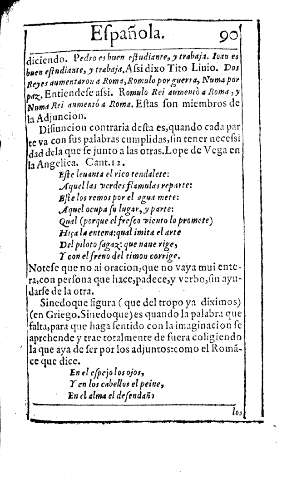 Española. 90
diciendo. Pedro es buen estudiante, y trabaja. Iuan es
buen estudiante, y trabaja. Assi dixo Tito Liuio. Dos
Reyes aumentaron a Roma, Romulo por guerra, Numa por
paz. Entiendese assi. Romulo Rei aumentò a Roma, y
Numa Rei aumentò a Roma. Estas son miembros de
la Adjuncion.
Disjuncion contraria desta es, quando cada par
te va con sus palabras cumplidas, sin tener necessi
dad de la que se junto a las otras. Lope de Vega en
la Angelica. Cant. 12.
Este leuanta el rico tendalete:
Aquel las verdes flamulas reparte:
Este los remos por el agua mete:
Aquel ocupa su lugar, y parte:
Qual (porque el fresco viento lo promete)
Hiça la entena: qual imita el arte
Del piloto sagaz: que naue rige,
Y con el freno del timon corrige.
Notese que no ai oracion, que no vaya mui ente-
ra, con persona que hace, padece, y verbo, sin ayu-
darse de la otra.
Sinedoque figura (que del tropo ya diximos)
(en Griego. Sinedoque) es quando la palabra que
falta, para que haga sentido con la imaginacion se
aprehende y trae totalmente de fuera coligiendo
la que aya de ser por los adjuntos: como el Romã-
ce que dice.
En el espejo los ojos,
Y en los cabellos el peine,
En el alma el desendaño
los